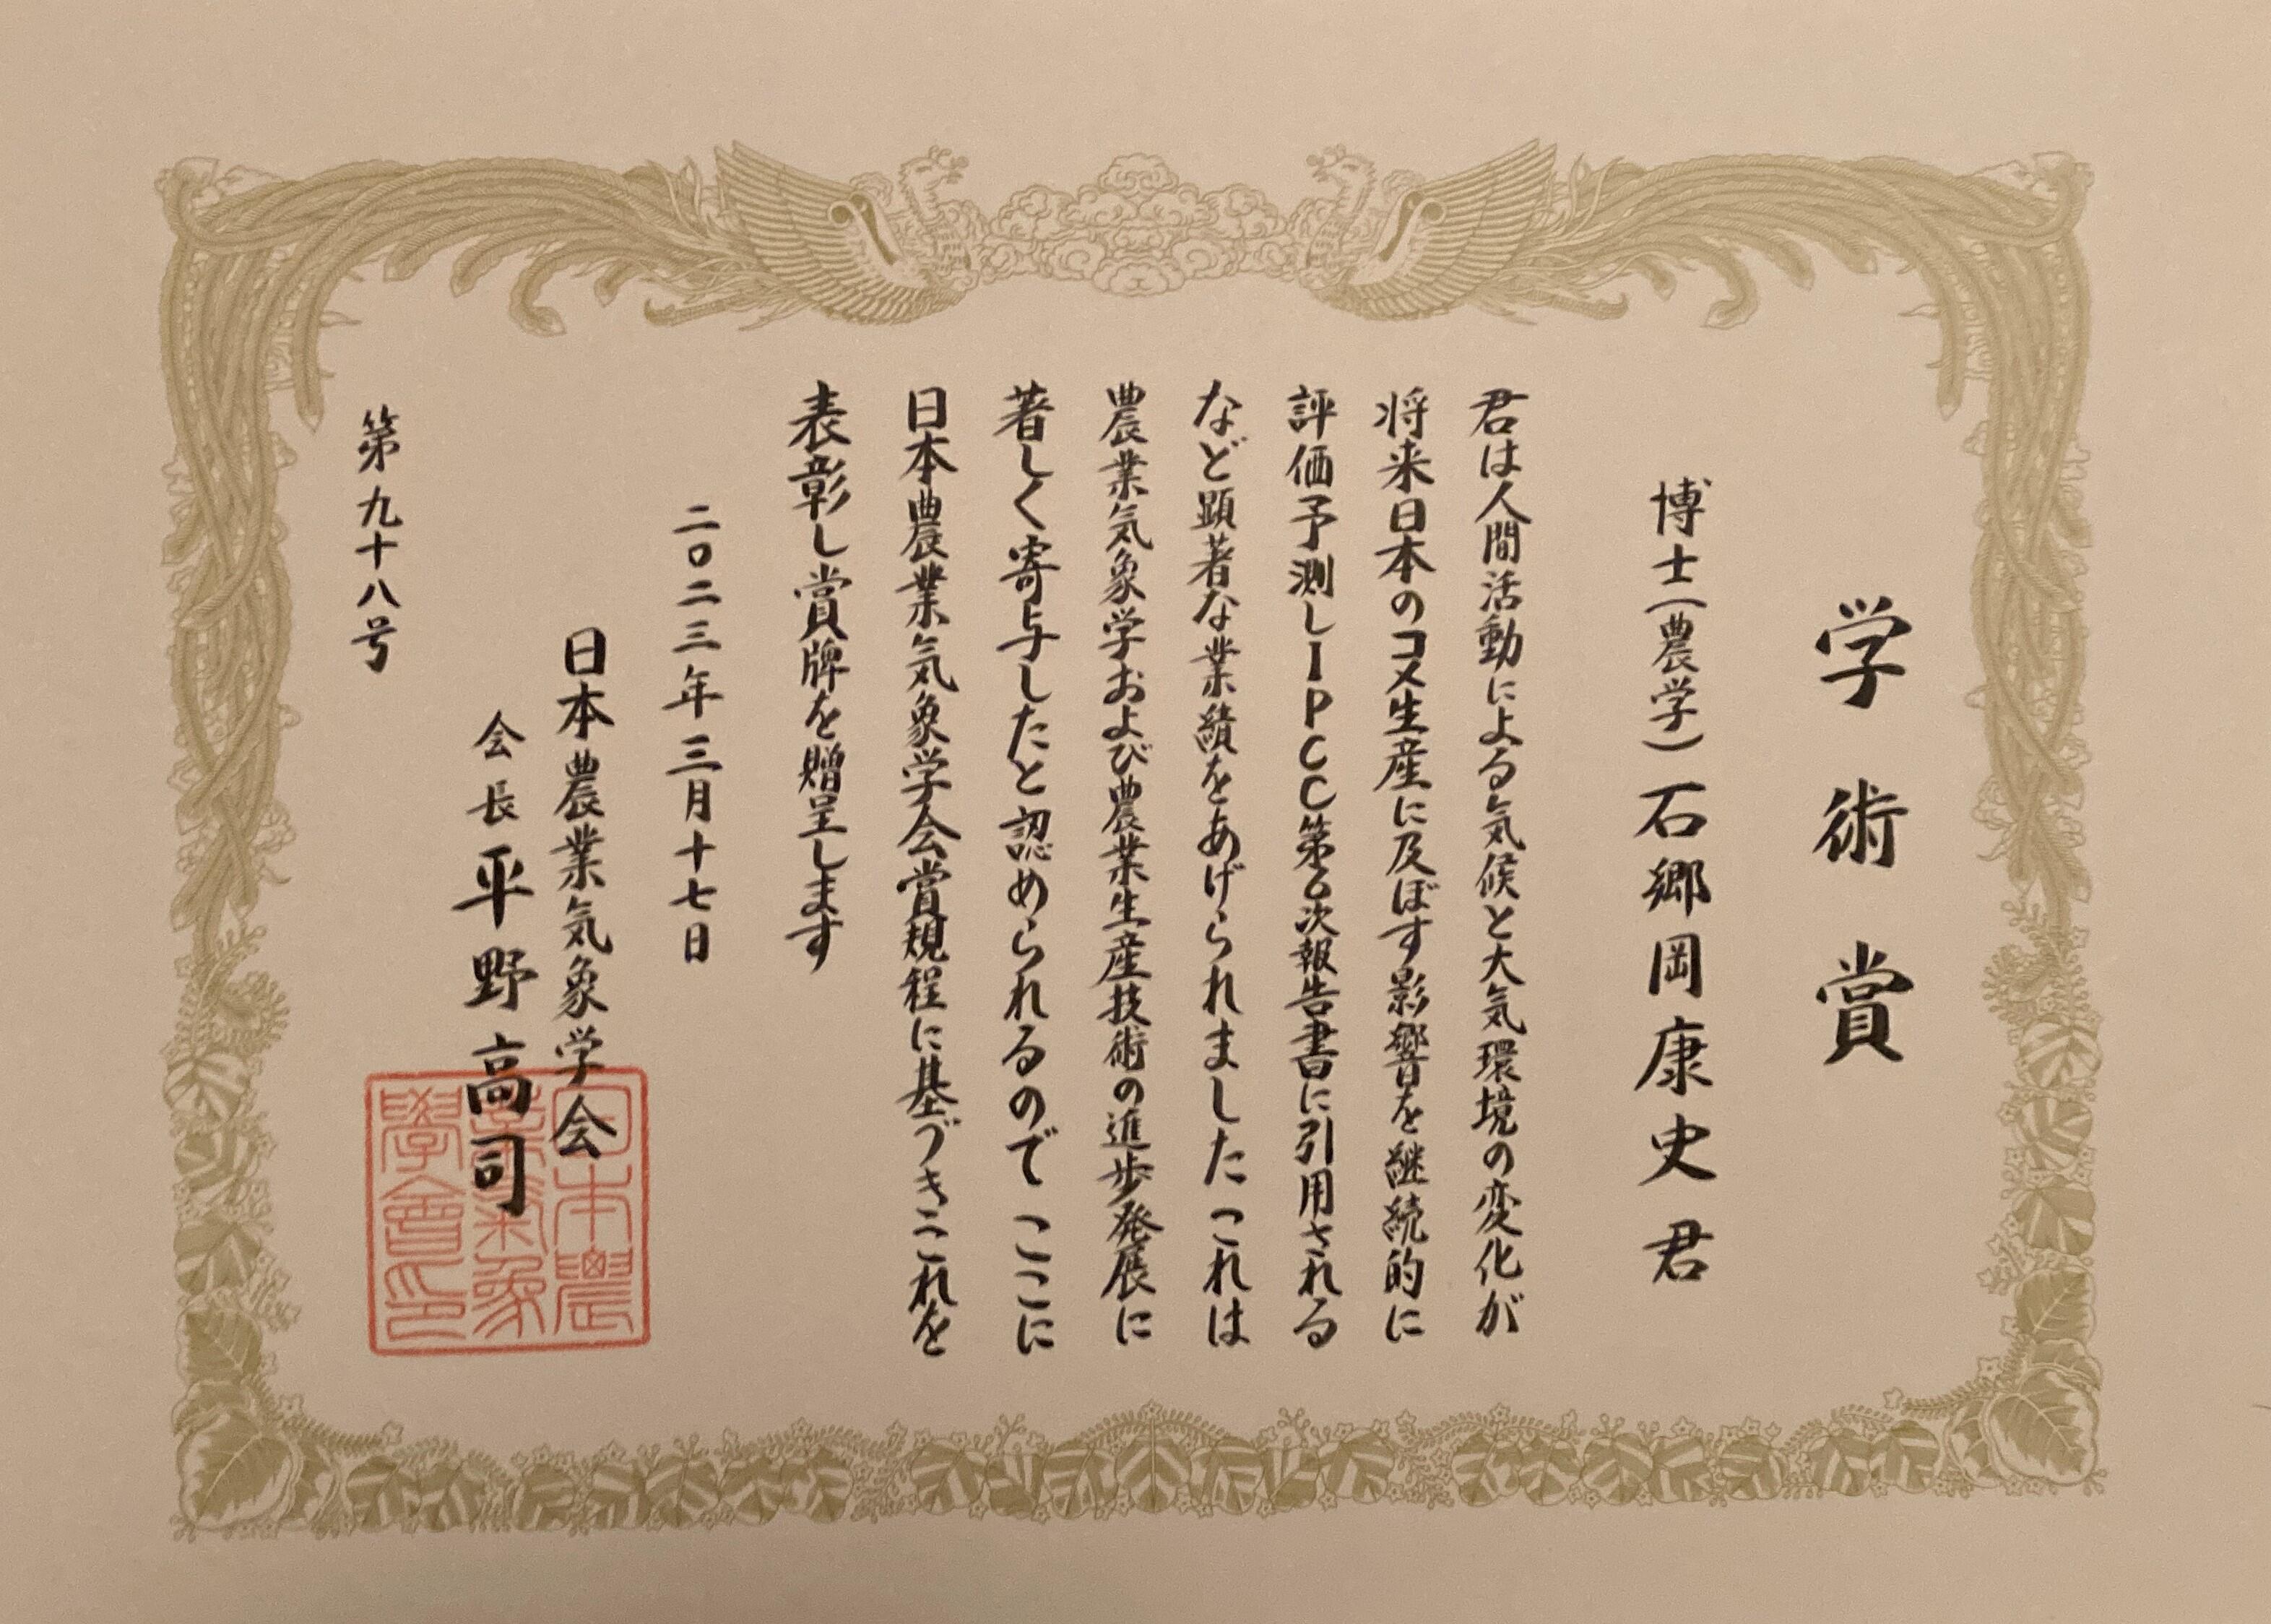 学術賞
博士(農学)石郷岡康史君
君は人間活動による気候と大気環境の変化が
将来日本のコメ生産に及ぼす影響を継続的に
評価予測しIPCC第6次報告書に引用される
など顕著な業績をあげられました これは
農業気象学および農業生産技術の進歩発展に
著しく寄与したと認められるので ここに
日本農業気象学会賞規程に基づきこれを
表彰し賞牌を贈呈します
二〇二三年三月十七日
日本農業気象学会
会長 平野高司
第九十八号
日本農
業氣象
學會印